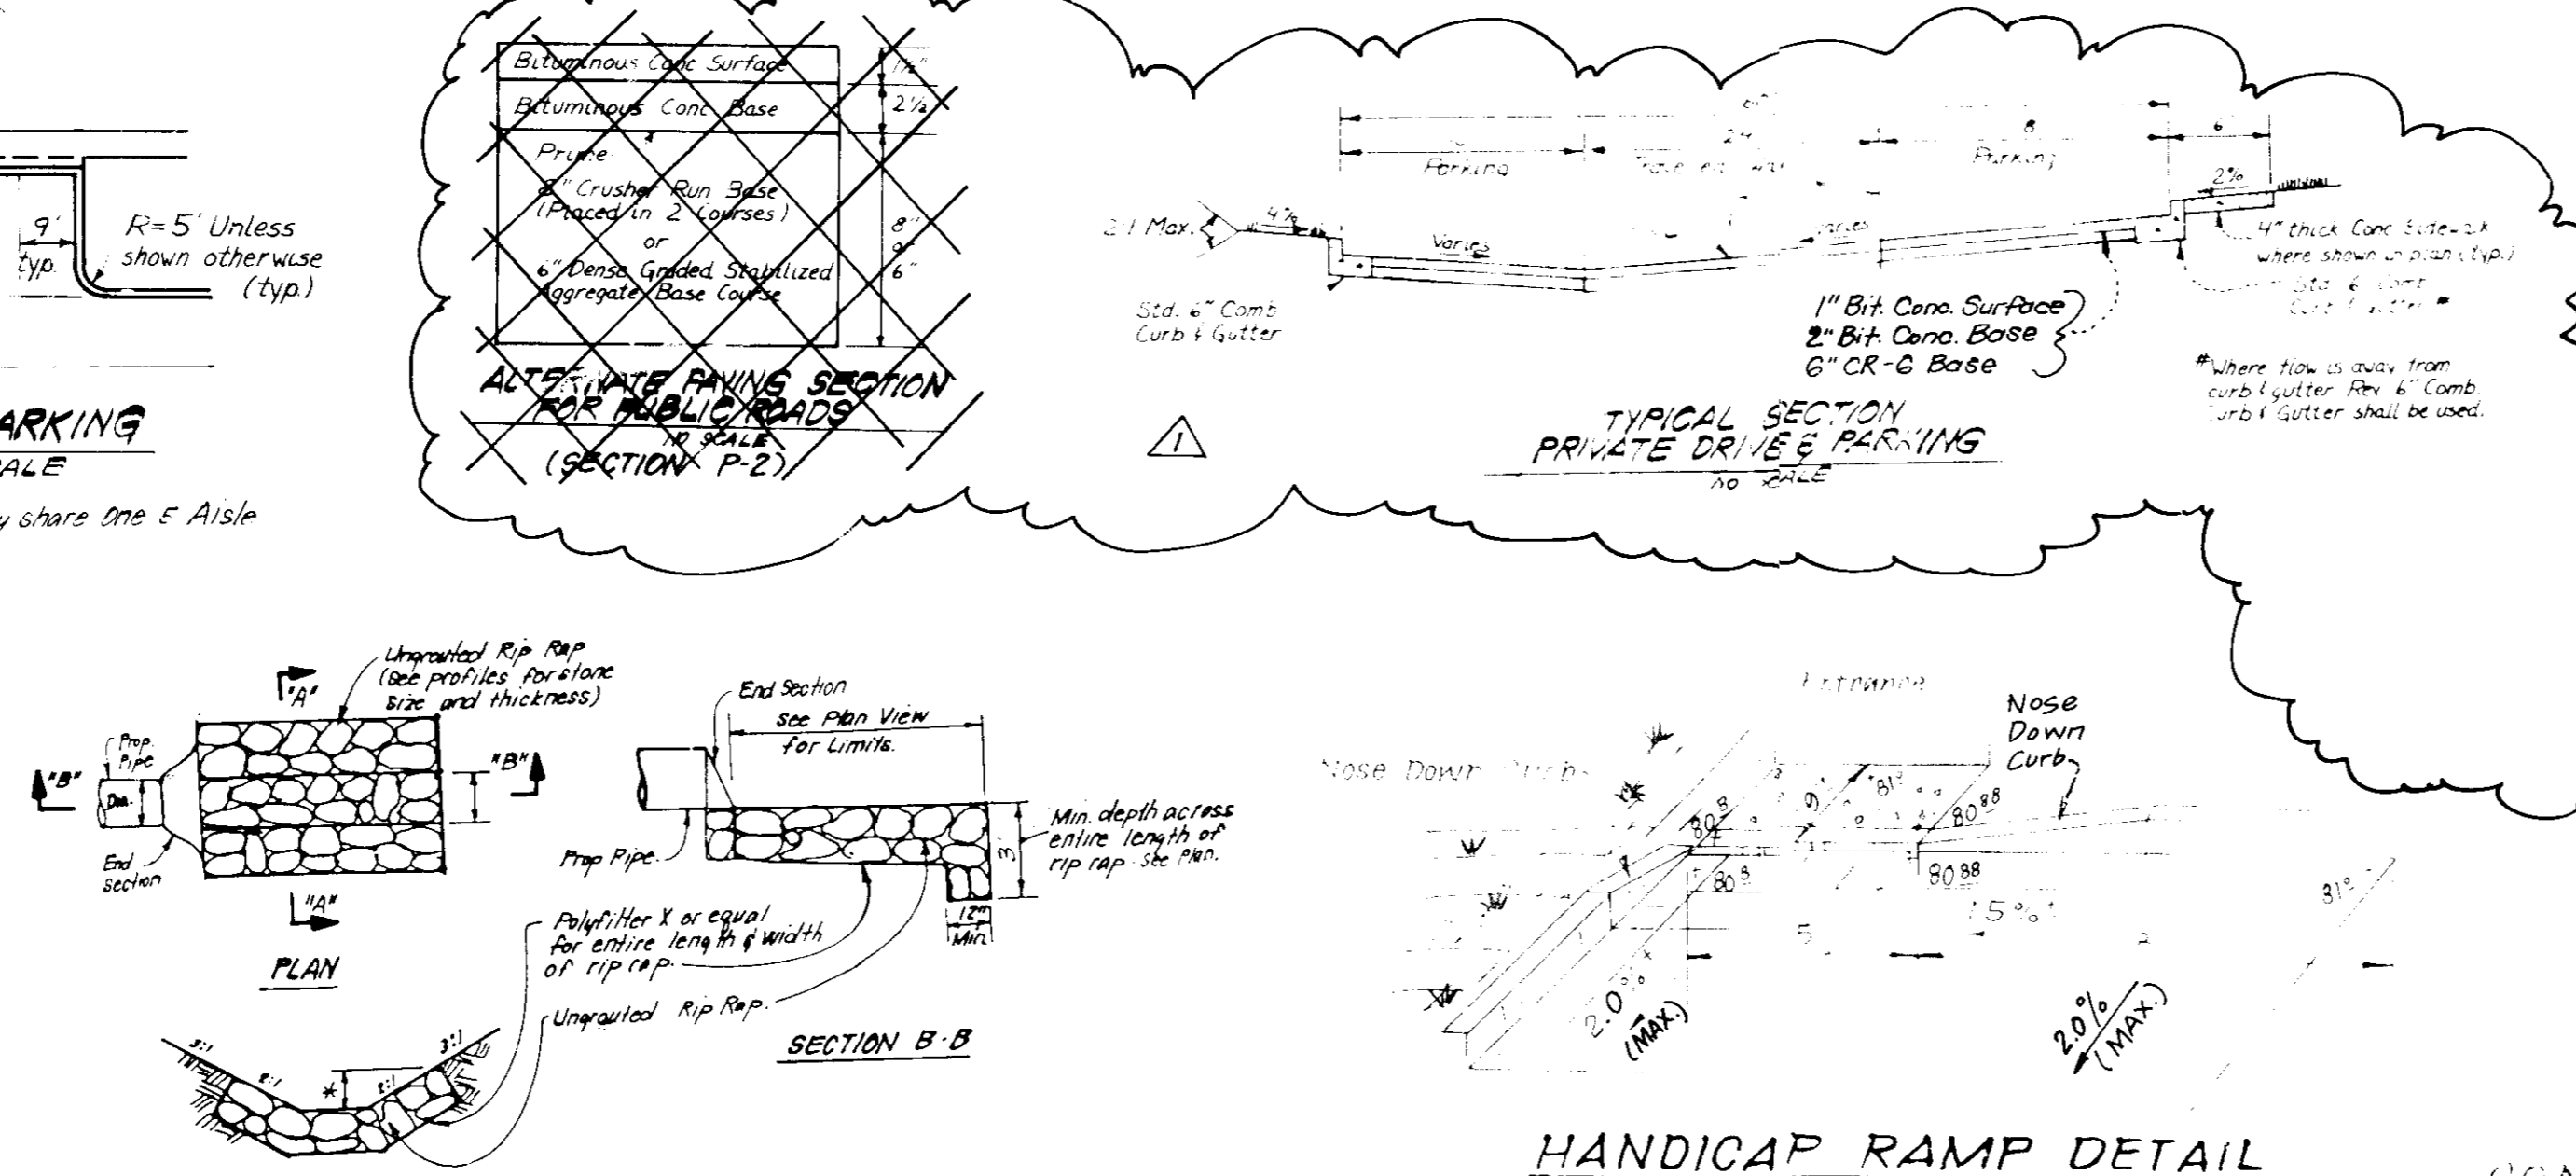 9'
typ.
R=5' Unless
shown otherwise
(typ.)
ARKING
ALE
y share One 5 Aisle
Bituminous Conc Surface
1½"
Bituminous Conc Base
2½
Prime
8" Crusher Run Base
(Placed in 2 Courses)
or
6" Dense Graded Stabilized
Aggregate Base Course
8"
or
6"
ALTERNATE PAVING SECTION
FOR PUBLIC ROADS
NO SCALE
(SECTION P-2)
24
8
6
Parking
Parking
2%
2:1 Max.
4%
Varies
varies
Std. 6" Comb
Curb & Gutter
4" thick Conc Sidewalk
where shown in plan (typ.)
Std 6" Comb
Curb & Gutter #
1" Bit. Conc. Surface
2" Bit. Conc. Base
6" CR-6 Base
#Where flow is away from
curb & gutter Rev 6" Comb.
Curb & Gutter shall be used.
1
TYPICAL SECTION
PRIVATE DRIVE & PARKING
NO SCALE
Ungrouted Rip Rap
(See profiles for stone
size and thickness)
"A"
Prop.
Pipe
"B"
"B"
Dia.
End
Section
"A"
PLAN
End Section
See Plan View
for Limits.
Prop Pipe.
3'
Min. depth across
entire length of
rip rap - See Plan.
12"
Min
Polyfilter X or equal
for entire length & width
of rip rap.
Ungrouted Rip Rap.
SECTION B-B
3:1
2:1
*
2:1
3:1
Entrance
Nose Down Curb
Nose
Down
Curb
9'
81⁰
80⁸
80⁸⁸
80⁸
80⁸⁸
5%
5
2
81⁰
2.0%
(MAX.)
2.0%
(MAX.)
HANDICAP RAMP DETAIL